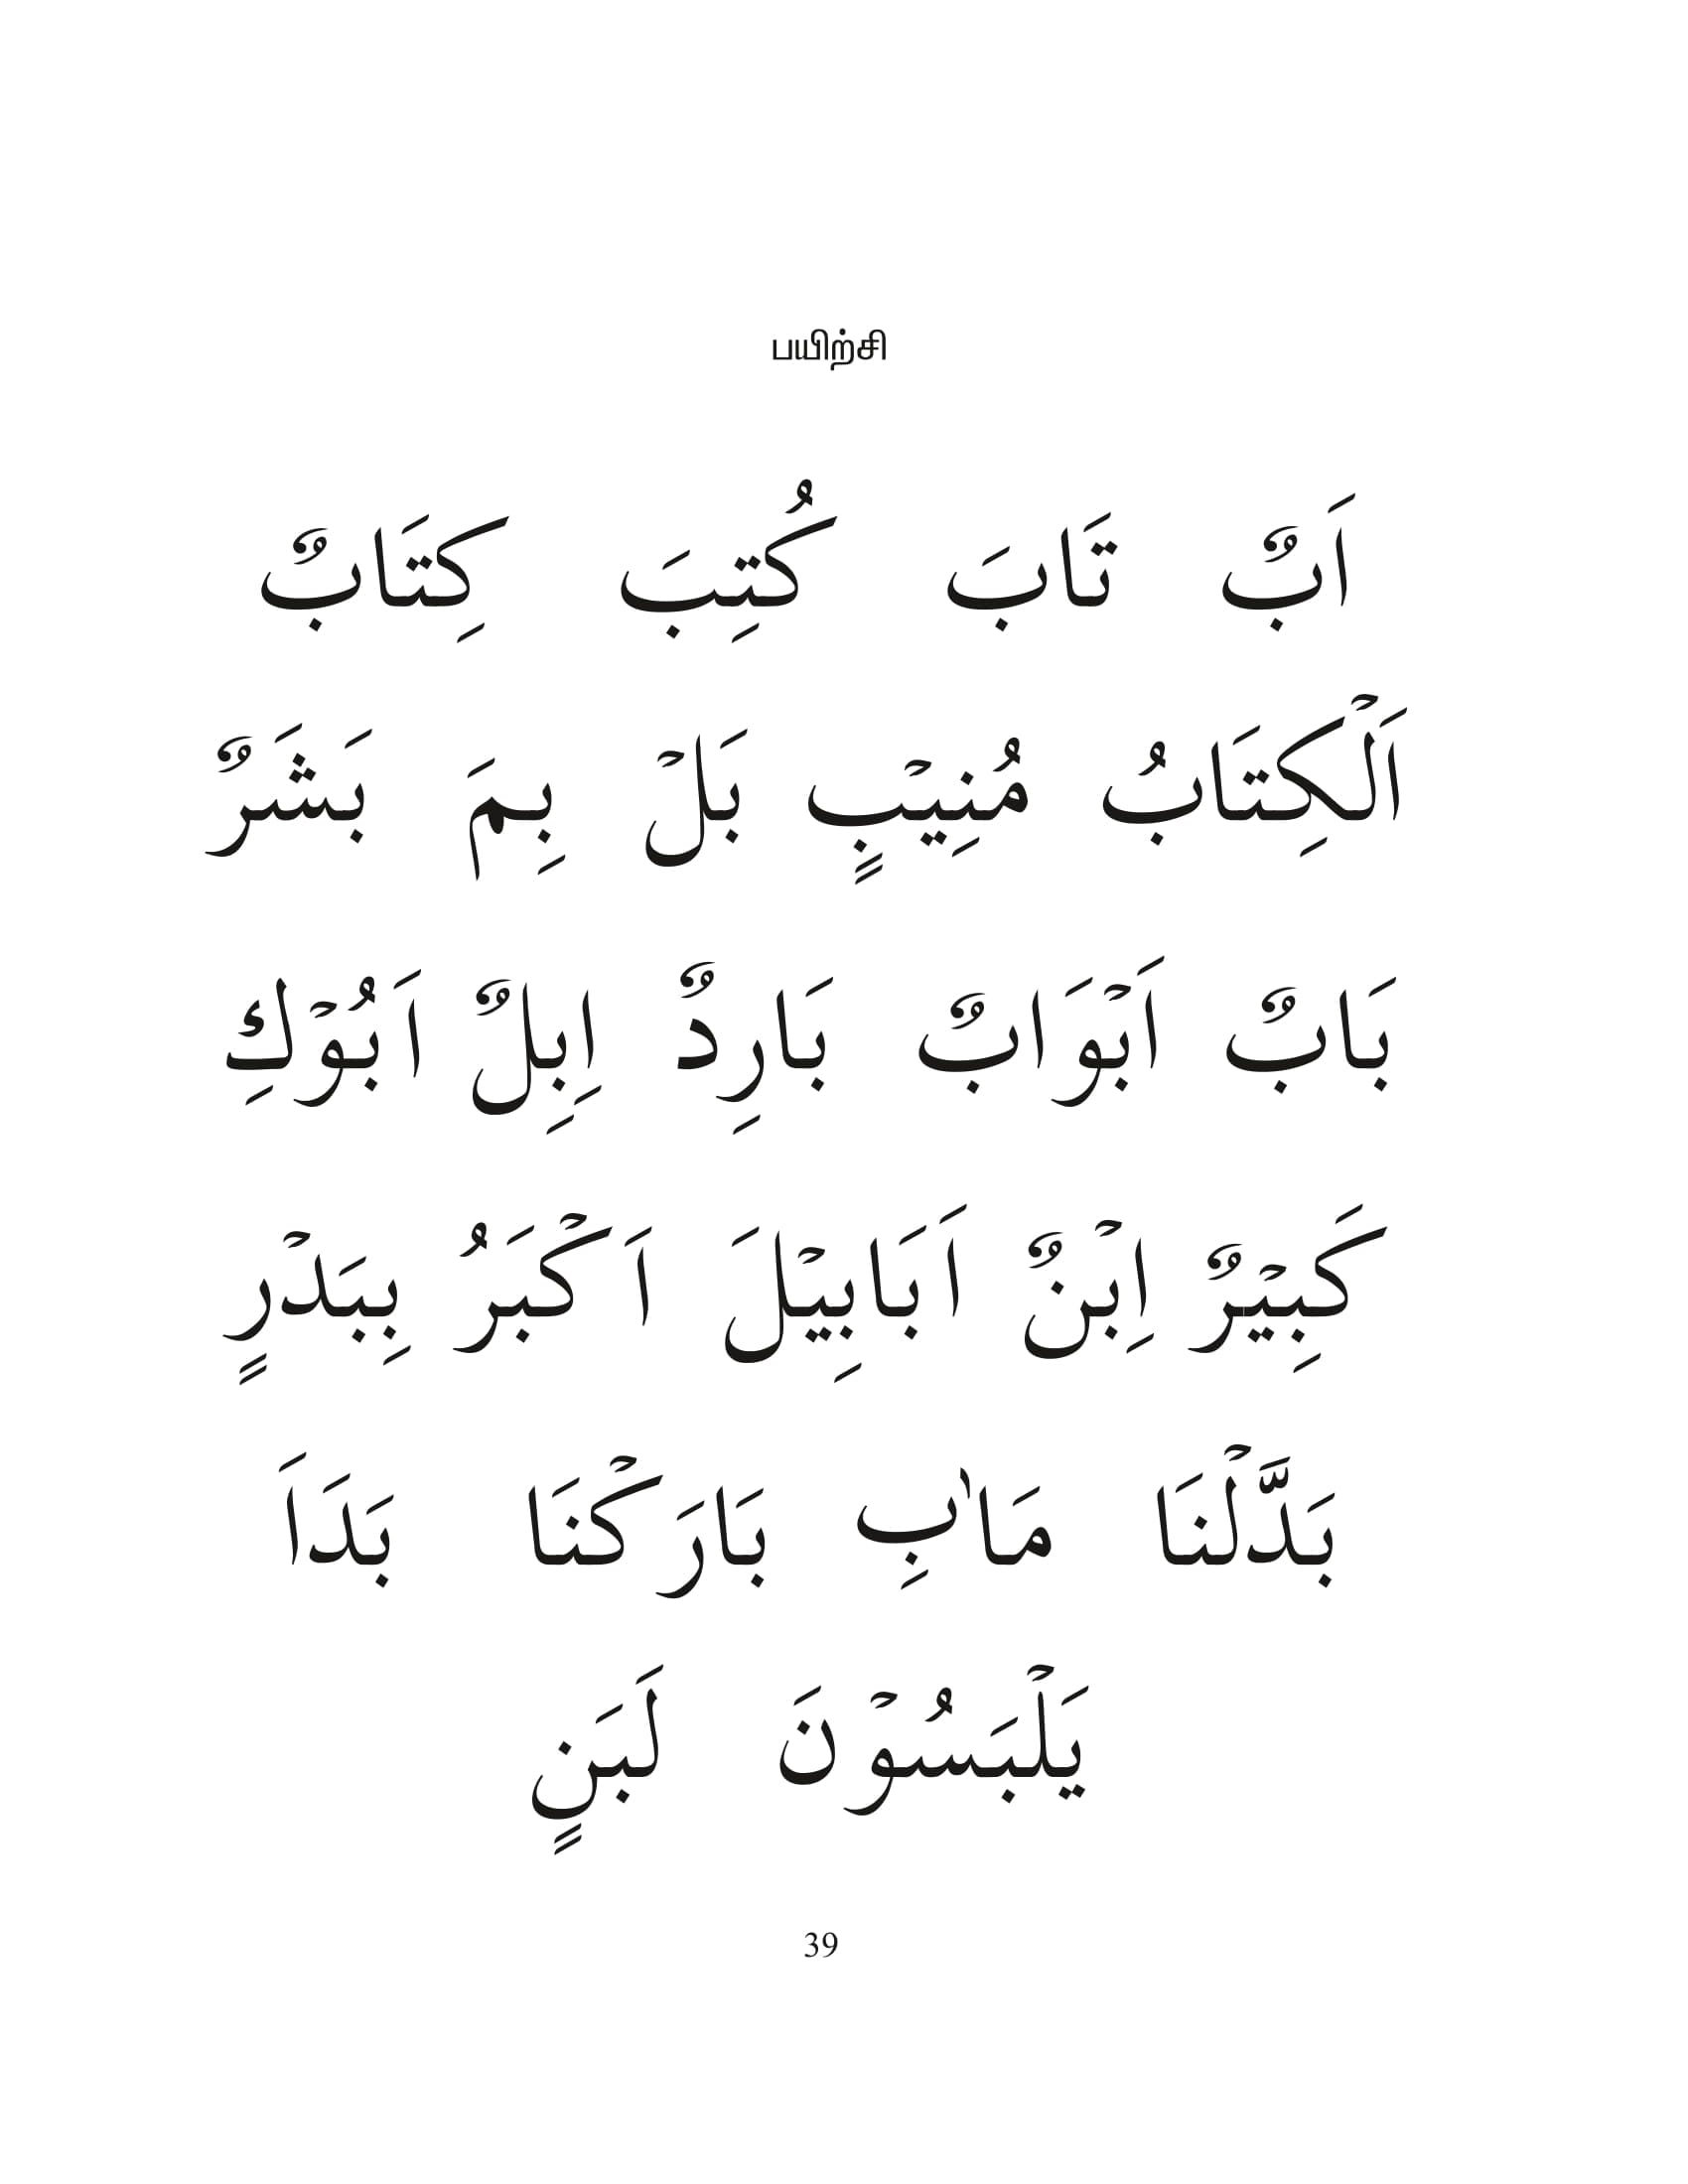 பயிற்சி
اَبٌ تَابَ كُتِبَ كِتَابٌ
اَلْكِتَابُ مُنِيْبٍ بَلْ بِمَ بَشَرٌ
بَابٌ اَبْوَابٌ بَارِدٌ اِبِلٌ اَبُوْكِ
كَبِيْرٌ اِبْنٌ اَبَابِيْلَ اَكْبَرُ بِبَدْرٍ
بَدَّلْنَا مَاٰبِ بَارَكْنَا بَدَاَ
يَلْبَسُوْنَ لَبَنٍ
39